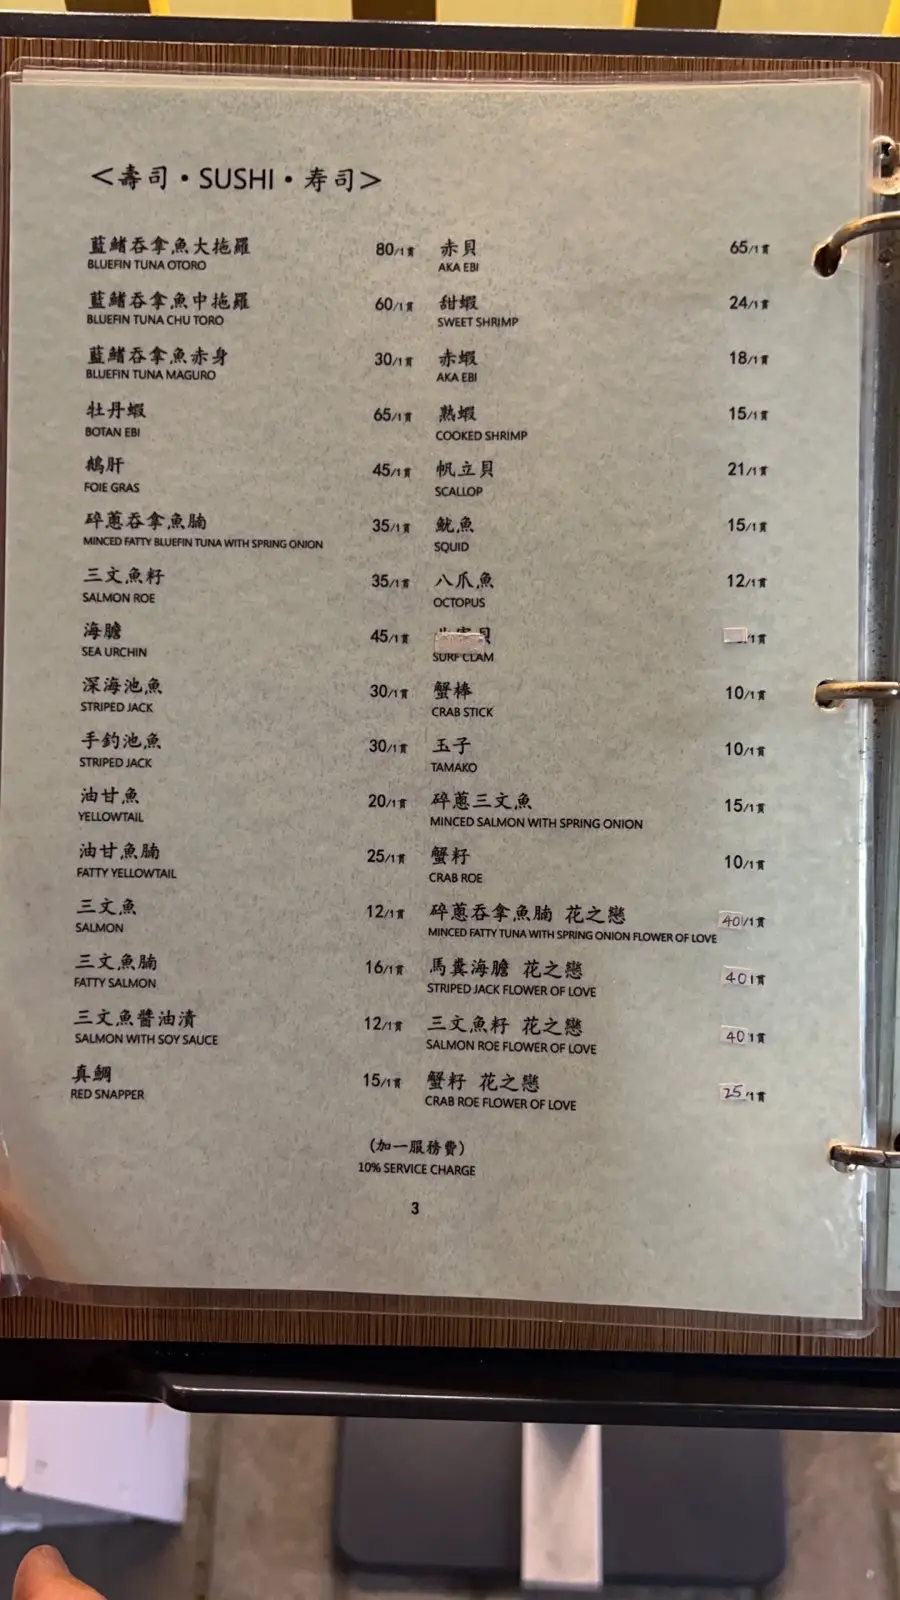 <壽司•SUSHI•寿司>
藍鰭吞拿魚大拖羅 80/1貫
BLUEFIN TUNA OTORO
藍鰭吞拿魚中拖羅 60/1貫
BLUEFIN TUNA CHU TORO
藍鰭吞拿魚赤身 30/1貫
BLUEFIN TUNA MAGURO
牡丹蝦 65/1貫
BOTAN EBI
鵝肝 45/1貫
FOIE GRAS
碎蔥吞拿魚腩 35/1貫
MINCED FATTY BLUEFIN TUNA WITH SPRING ONION
三文魚籽 35/1貫
SALMON ROE
海膽 45/1貫
SEA URCHIN
深海池魚 30/1貫
STRIPED JACK
手釣池魚 30/1貫
STRIPED JACK
油甘魚 20/1貫
YELLOWTAIL
油甘魚腩 25/1貫
FATTY YELLOWTAIL
三文魚 12/1貫
SALMON
三文魚腩 16/1貫
FATTY SALMON
三文魚醬油漬 12/1貫
SALMON WITH SOY SAUCE
真鯛 15/1貫
RED SNAPPER
赤貝 65/1貫
AKA EBI
甜蝦 24/1貫
SWEET SHRIMP
赤蝦 18/1貫
AKA EBI
熟蝦 15/1貫
COOKED SHRIMP
帆立貝 21/1貫
SCALLOP
魷魚 15/1貫
SQUID
八爪魚 12/1貫
OCTOPUS
貝 /1貫
SURF CLAM
蟹棒 10/1貫
CRAB STICK
玉子 10/1貫
TAMAKO
碎蔥三文魚 15/1貫
MINCED SALMON WITH SPRING ONION
蟹籽 10/1貫
CRAB ROE
碎蔥吞拿魚腩 花之戀 40/1貫
MINCED FATTY TUNA WITH SPRING ONION FLOWER OF LOVE
馬糞海膽 花之戀 40 1貫
STRIPED JACK FLOWER OF LOVE
三文魚籽 花之戀 40 1貫
SALMON ROE FLOWER OF LOVE
蟹籽 花之戀 25/1貫
CRAB ROE FLOWER OF LOVE
(加一服務費)
10% SERVICE CHARGE
3